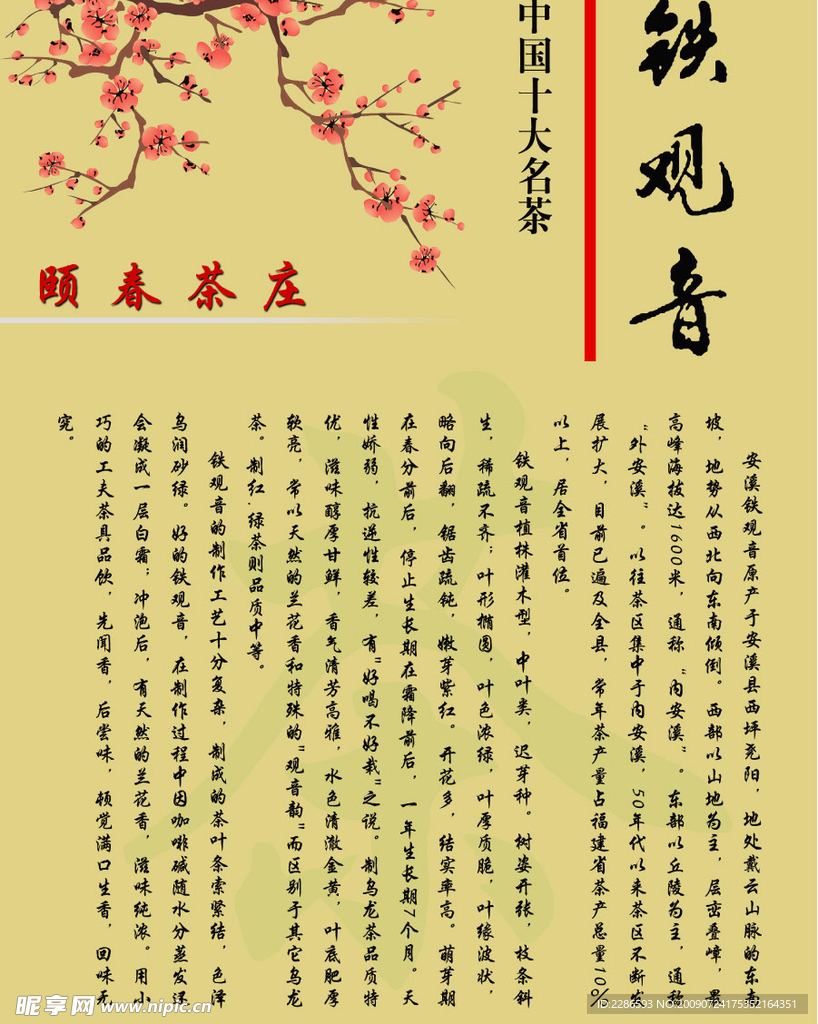 铁观音
中国十大名茶
颐春茶庄
安溪铁观音原产于安溪县西坪尧阳，地处戴云山脉的东南
坡，地势从西北向东南倾倒。西部以山地为主，层峦叠嶂，最
高峰海拔达1600米，通称“内安溪”。东部以丘陵为主，通称
“外安溪”。以往茶区集中于内安溪，50年代以来茶区不断发
展扩大，目前已遍及全县，常年茶产量占福建省茶产总量10%
以上，居全省首位。
铁观音植株灌木型，中叶类，迟芽种。树姿开张，枝条斜
生，稀疏不齐；叶形椭圆，叶色浓绿，叶厚质脆，叶缘波状，
略向后翻，锯齿疏钝，嫩芽紫红。开花多，结实率高。萌芽期
在春分前后，停止生长期在霜降前后，一年生长期7个月。天
性娇弱，抗逆性较差，有"好喝不好栽"之说。制乌龙茶品质特
优，滋味醇厚甘鲜，香气清芳高雅，水色清澈金黄，叶底肥厚
软亮，常以天然的兰花香和特殊的"观音韵"而区别于其它乌龙
茶。制红.绿茶则品质中等。
铁观音的制作工艺十分复杂，制成的茶叶条索紧结，色泽
乌润砂绿。好的铁观音，在制作过程中因咖啡碱随水分蒸发还
会凝成一层白霜；冲泡后，有天然的兰花香，滋味纯浓。用小
巧的工夫茶具品饮，先闻香，后尝味，顿觉满口生香，回味无
究。
茶
昵享网 www.nipic.cn
ID:2286593 NO:20090724175352164351